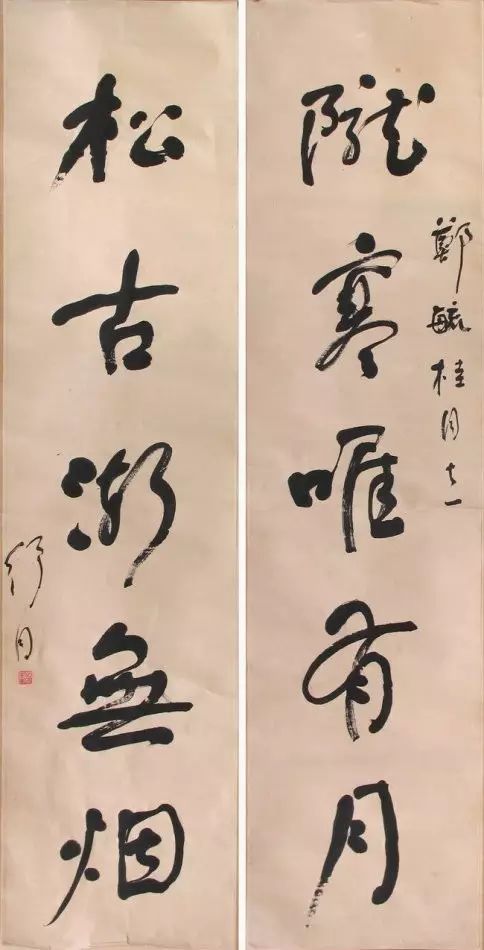 隴寒唯有月
鄭毓桂同志
松古漸無烟
舒同